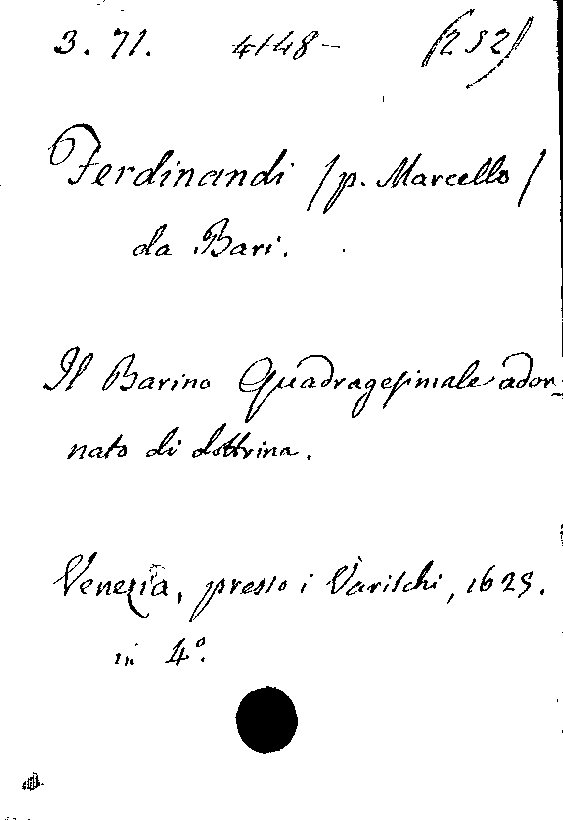 3. 71. 4148- (252)
Ferdinandi (p. Marcello)
da Bari.
Il Barino Quadragesimale ador-
nato di dottrina.
Venezia, presso i Varischi, 1625.
in 4º.